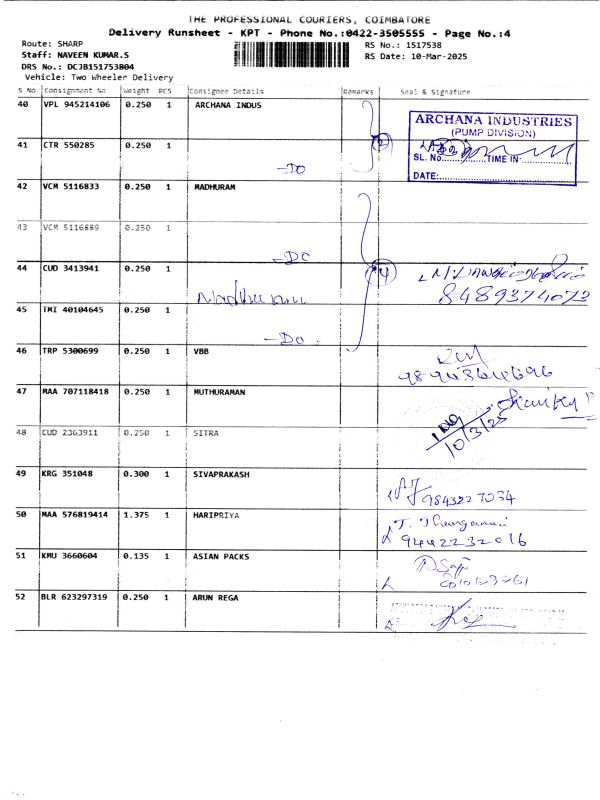 THE PROFESSIONAL COURIERS, COIMBATORE
Delivery Runsheet - KPT - Phone No.:0422-3505555 - Page No.:4
Route: SHARP
RS No.: 1517538
Staff: NAVEEN KUMAR.S
RS Date: 10-Mar-2025
DRS No.: DCJB151753804
Vehicle: Two Wheeler Delivery
S No Consignment No Weight PCS Consignee Details Remarks Seal & Signature
40 VPL 945214106 0.250 1 ARCHANA INDUS
ARCHANA INDUSTRIES
(PUMP DIVISION)
41 CTR 550285 0.250 1
2
SL. No. TIME IN
-DO
DATE:
42 VCM 5116833 0.250 1 MADHURAM
43 VCM 5116889 0.250 1
-DO
44 CUD 3413941 0.250 1
4
Madhuram
8489374073
45 TMI 40104645 0.250 1
-Do.
46 TRP 5300699 0.250 1 VBB
47 MAA 707118418 0.250 1 MUTHURAMAN
10/3/25
48 CUD 2363911 0.250 1 SITRA
49 KRG 351048 0.300 1 SIVAPRAKASH
9843227034
50 MAA 576819414 1.375 1 HARIPRIYA
9442232016
51 KMU 3660604 0.135 1 ASIAN PACKS
52 BLR 623297319 0.250 1 ARUN REGA